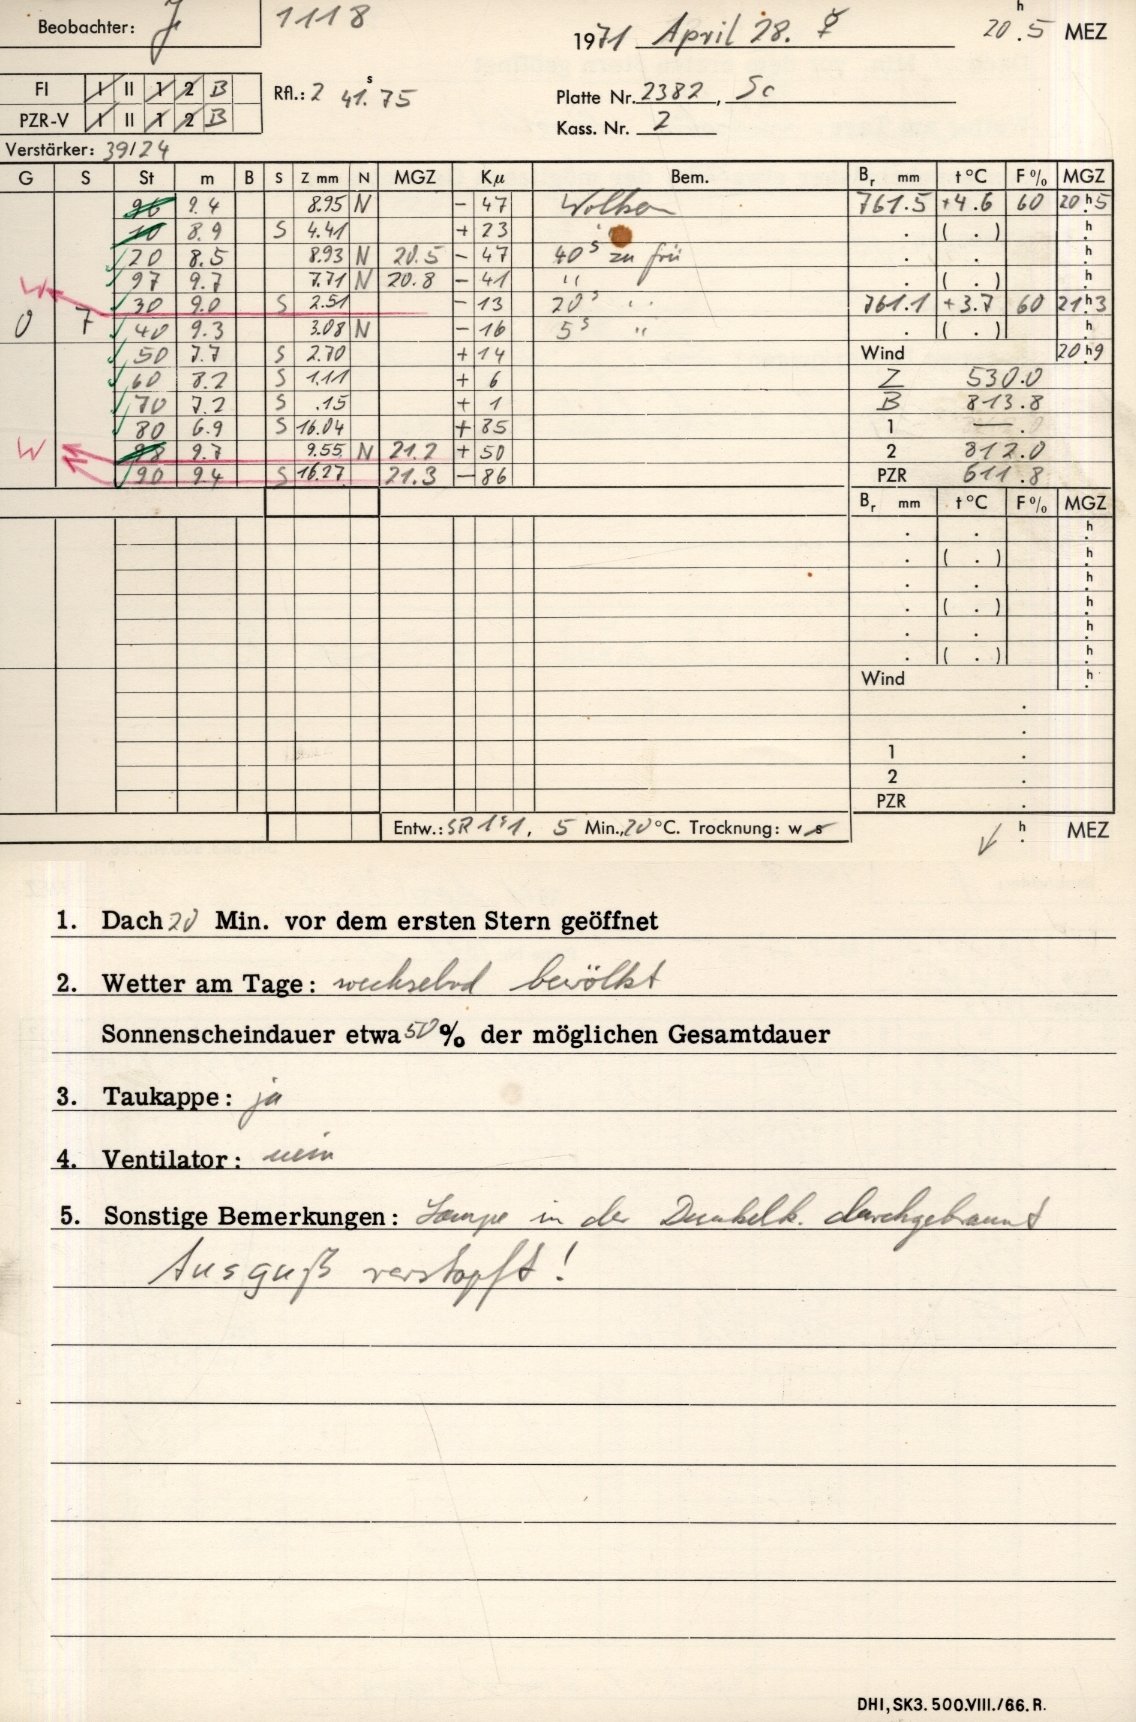 Beobachter: J
1118
1971 April 28. ☿
20h.5 MEZ
FI I II 1 2 B
PZR-V I II 1 2 B
Rfl.: 2 41s.75
Platte Nr. 2382, Sc
Kass. Nr. 2
Verstärker: 39/24
G S St m B S Z mm N MGZ Kμ Bem. Br mm t°C F% MGZ
96 9.4 8.95 N - 47 Wolken 761.5 +4.6 60 20h5
10 8.9 S 4.41 + 23 " . ( . ) h.
20 8.5 8.93 N 20.5 - 47 40s zu frü . . h.
97 9.7 7.71 N 20.8 - 41 " . ( . ) h.
W 30 9.0 S 2.51 - 13 20s " 761.1 +3.7 60 21h3
0 7 40 9.3 3.08 N - 16 5s " . ( . ) h.
50 7.7 S 2.70 + 14 Wind 20h9
60 8.2 S 1.11 + 6 Z 530.0
70 7.2 S .15 + 1 B 813.8
80 6.9 S 16.04 + 85 1 — .
W 98 9.7 9.55 N 21.2 + 50 2 812.0
90 9.4 S 16.27 21.3 - 86 PZR 611.8
Br mm t°C F% MGZ
. . h.
. ( . ) h.
. . h.
. ( . ) h.
. . h.
. ( . ) h.
Wind h.
.
.
1 .
2 .
PZR .
Entw.: SR 1:1, 5 Min., 20 °C. Trocknung: w s
h. MEZ
1. Dach 20 Min. vor dem ersten Stern geöffnet
2. Wetter am Tage: wechselnd bewölkt
Sonnenscheindauer etwa 50 % der möglichen Gesamtdauer
3. Taukappe: ja
4. Ventilator: nein
5. Sonstige Bemerkungen: Lampe in der Dunkelk. durchgebrannt
Ausguß verstopft!
DHI, SK3. 500.VIII./66. R.